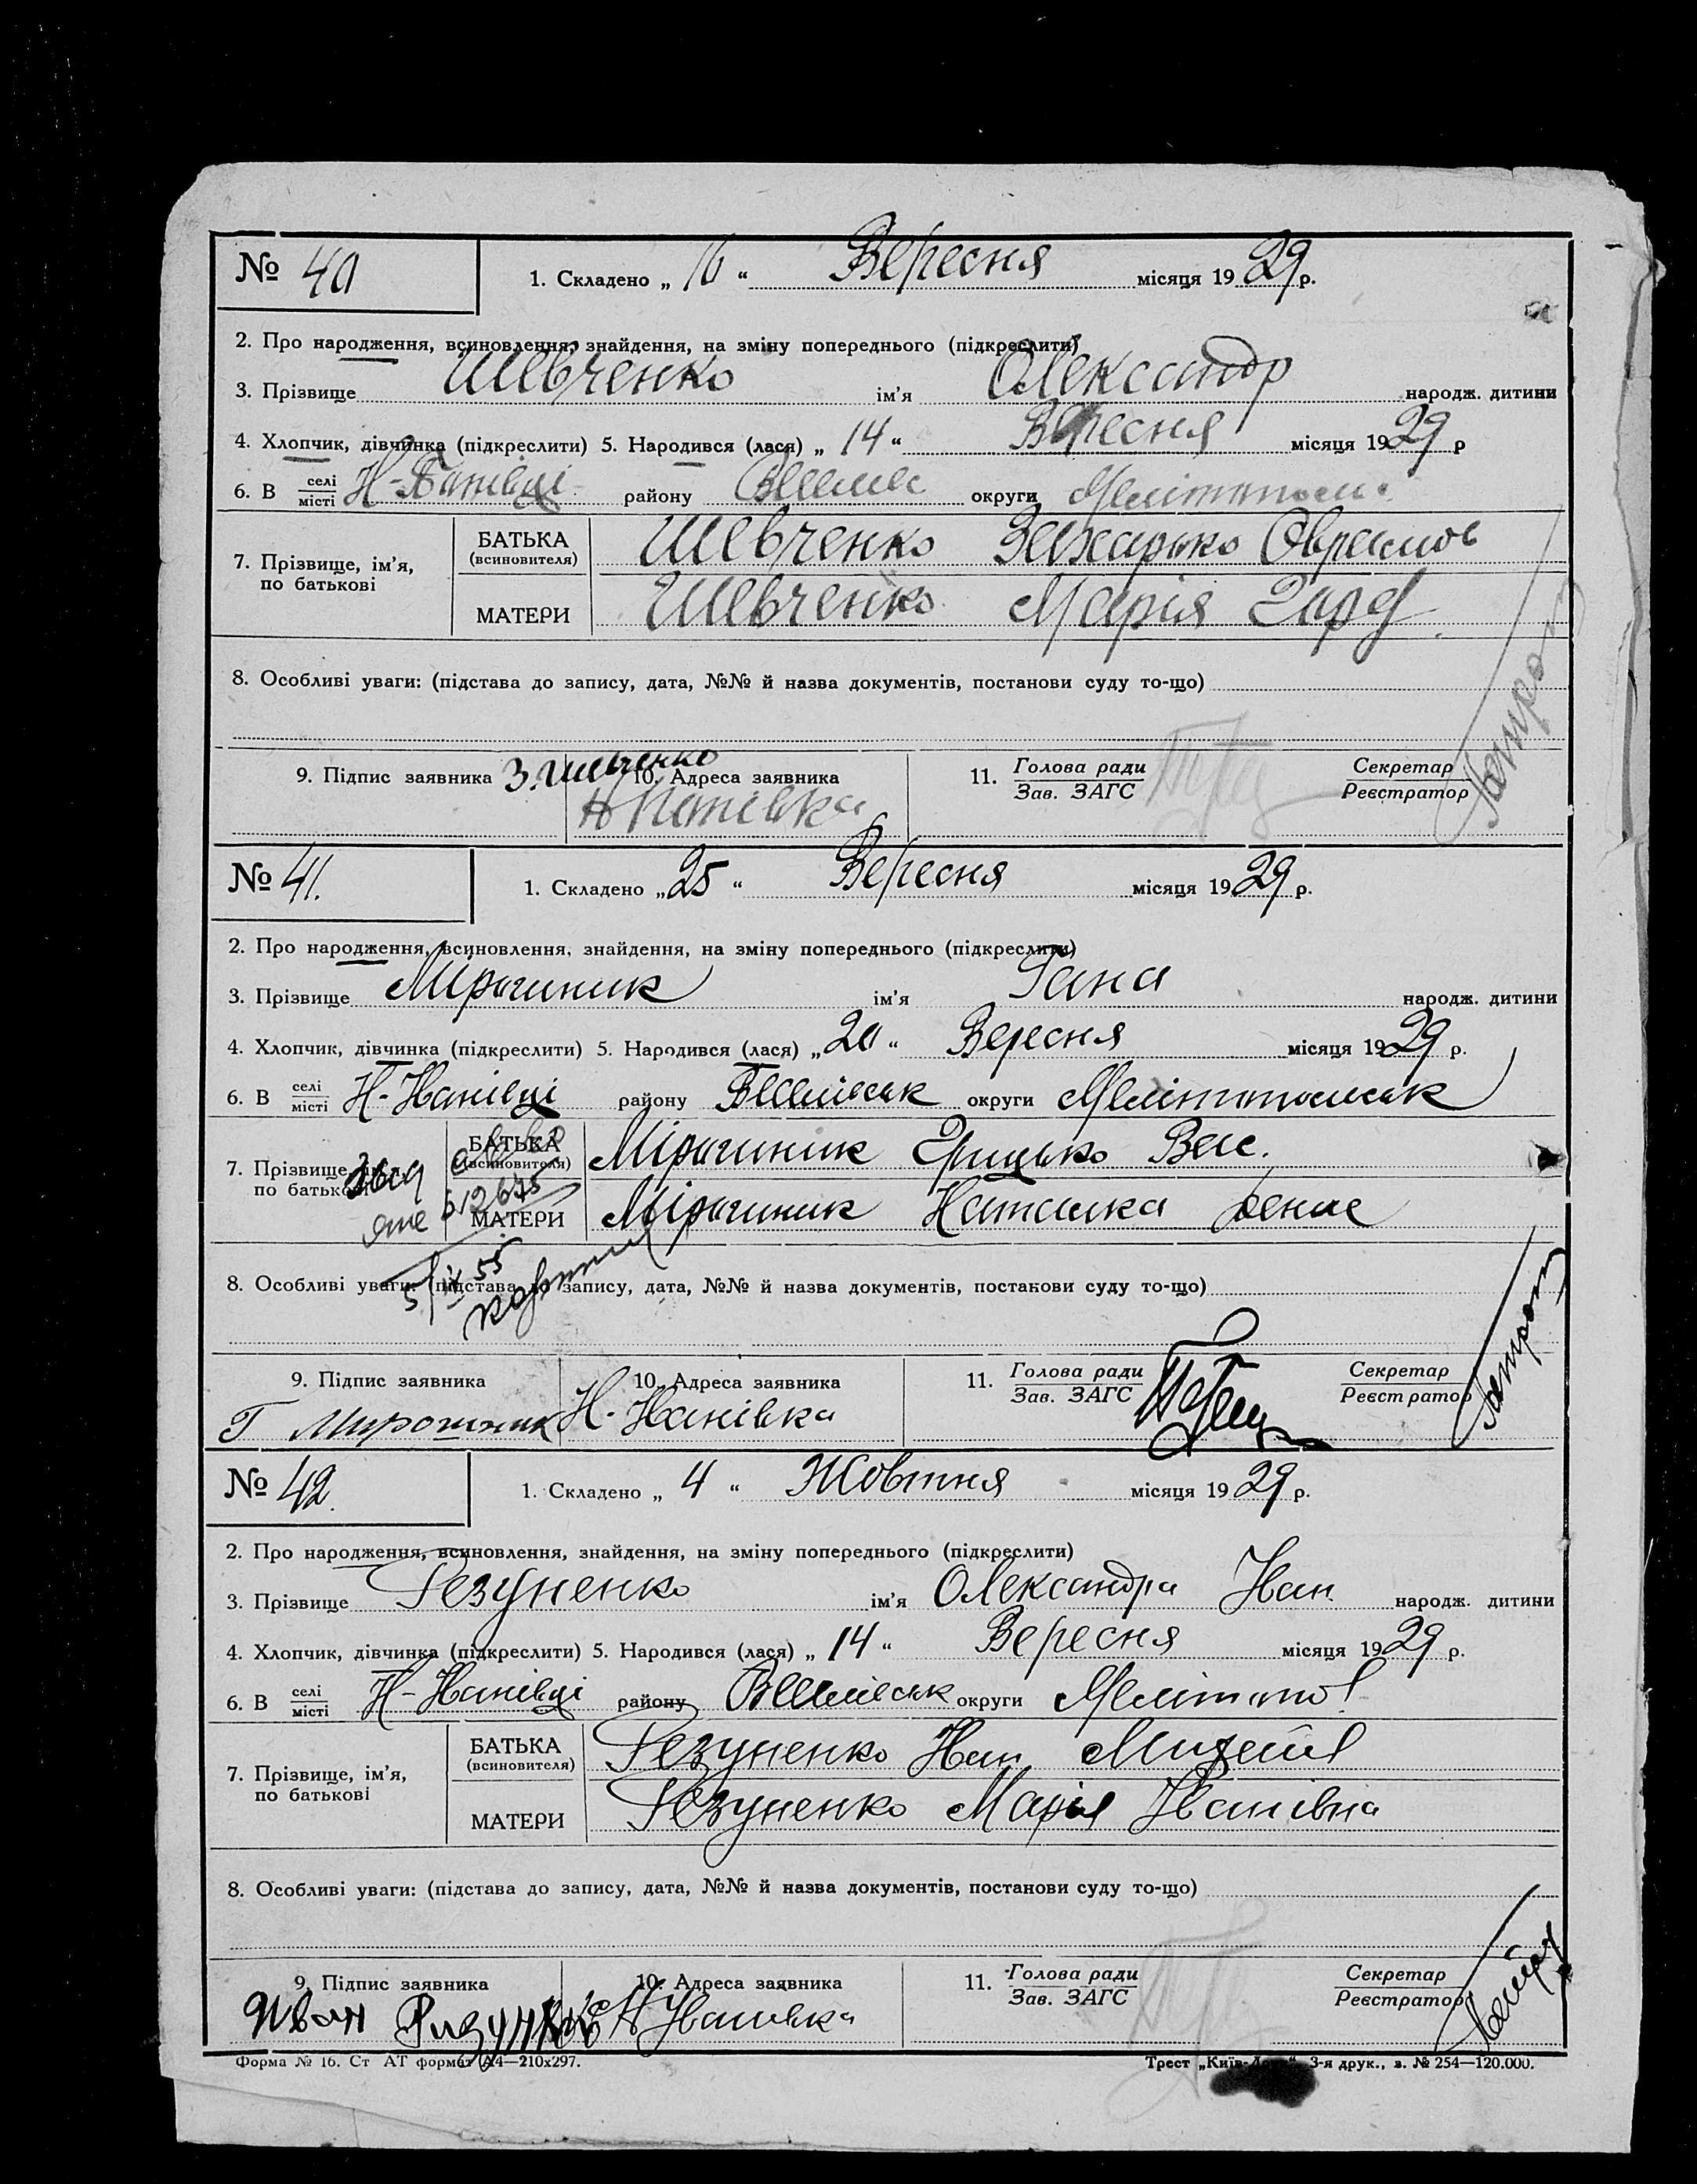 № 40
1. Складено „ 16 “ Вересня місяця 1929 р.
2. Про народження, всиновлення, знайдення, на зміну попереднього (підкреслити)
3. Прізвище Шевченко ім'я Олександр народж. дитини
4. Хлопчик, дівчинка (підкреслити) 5. Народився (лася) „ 14 “ Вересня місяця 1929 р
6. В селі місті району округи
7. Прізвище, ім'я, по батькові
БАТЬКА (всиновителя) Шевченко Захарько
МАТЕРИ Шевченко Марія
8. Особливі уваги: (підстава до запису, дата, №№ й назва документів, постанови суду то-що)
9. Підпис заявника З. Шевченко
10. Адреса заявника
11. Голова ради Зав. ЗАГС
Секретар Реєстратор
№ 41.
1. Складено „ 25 “ Вересня місяця 1929 р.
2. Про народження, всиновлення, знайдення, на зміну попереднього (підкреслити)
3. Прізвище Мірошник ім'я Гана народж. дитини
4. Хлопчик, дівчинка (підкреслити) 5. Народився (лася) „ 20 “ Вересня місяця 1929 р.
6. В селі місті Н-Іванівці району округи Мелітопольськ
7. Прізвище, ім'я, по батькові
БАТЬКА (всиновителя) Мірошник Грицько
МАТЕРИ Мірошник Наталка
8. Особливі уваги: (підстава до запису, дата, №№ й назва документів, постанови суду то-що)
9. Підпис заявника Г Мирошник
10. Адреса заявника Н-Іванівка
11. Голова ради Зав. ЗАГС
Секретар Реєстратор
№ 42.
1. Складено „ 4 “ Жовтня місяця 1929 р.
2. Про народження, всиновлення, знайдення, на зміну попереднього (підкреслити)
3. Прізвище Резуненко ім'я Олександра Іван народж. дитини
4. Хлопчик, дівчинка (підкреслити) 5. Народився (лася) „ 14 “ Вересня місяця 1929 р.
6. В селі місті Н-Іванівці району округи
7. Прізвище, ім'я, по батькові
БАТЬКА (всиновителя) Резуненко Іван
МАТЕРИ Резуненко Марія Іванівна
8. Особливі уваги: (підстава до запису, дата, №№ й назва документів, постанови суду то-що)
9. Підпис заявника Иван
10. Адреса заявника Н Іванівка
11. Голова ради Зав. ЗАГС
Секретар Реєстратор
Форма № 16. Ст АТ формат А4—210x297.
Трест 3-я друк., з. № 254—120.000.